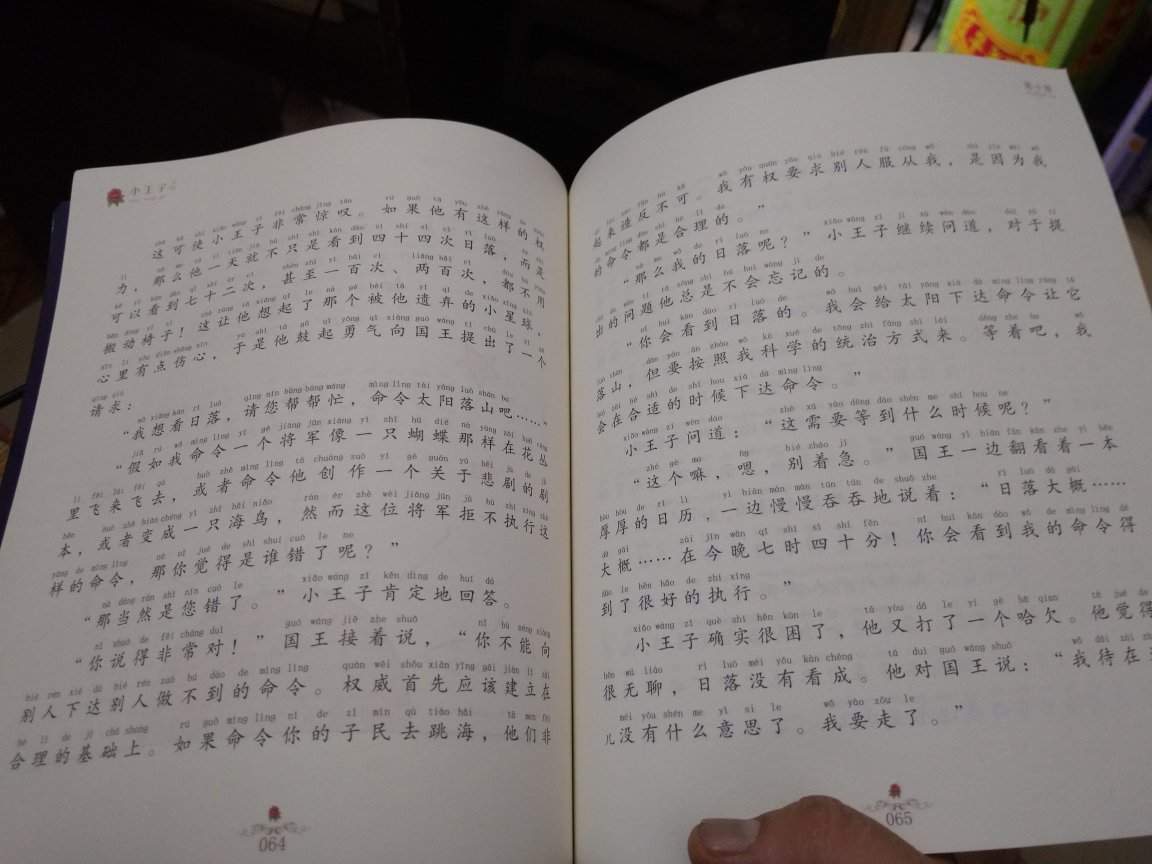 小王子
这可使小王子非常惊叹。如果他有这样的权
力，那么他一天就不只是看到四十四次日落，而是
可以看到七十二次，甚至一百次、两百次，都不用
搬动椅子！这让他想起了那个被他遗弃的小星球，
心里有点伤心，于是他鼓起勇气向国王提出了一个
请求：
“我想看日落，请您帮帮忙，命令太阳落山吧……”
“假如我命令一个将军像一只蝴蝶那样在花丛
里飞来飞去，或者命令他创作一个关于悲剧的剧
本，或者变成一只海鸟，然而这位将军拒不执行这
样的命令，那你觉得是谁错了呢？”
“那当然是您错了。”小王子肯定地回答。
“你说得非常对！”国王接着说，“你不能向
别人下达别人做不到的命令。权威首先应该建立在
合理的基础上。如果命令你的子民去跳海，他们非
064
起来造反不可。我有权要求别人服从我，是因为我
的命令都是合理的。”
“那么我的日落呢？”小王子继续问道，对于提
出的问题他总是不会忘记的。
“你会看到日落的。我会给太阳下达命令让它
落山，但要按照我科学的统治方式来。等着吧，我
会在合适的时候下达命令。”
小王子问道：“这需要等到什么时候呢？”
“这个嘛，嗯，别着急。”国王一边翻看着一本
厚厚的日历，一边慢慢吞吞地说着：“日落大概……
大概……在今晚七时四十分！你会看到我的命令得
到了很好的执行。”
小王子确实很困了，他又打了一个哈欠。他觉得
很无聊，日落没有看成。他对国王说：“我待在
儿没有什么意思了。我要走了。”
065